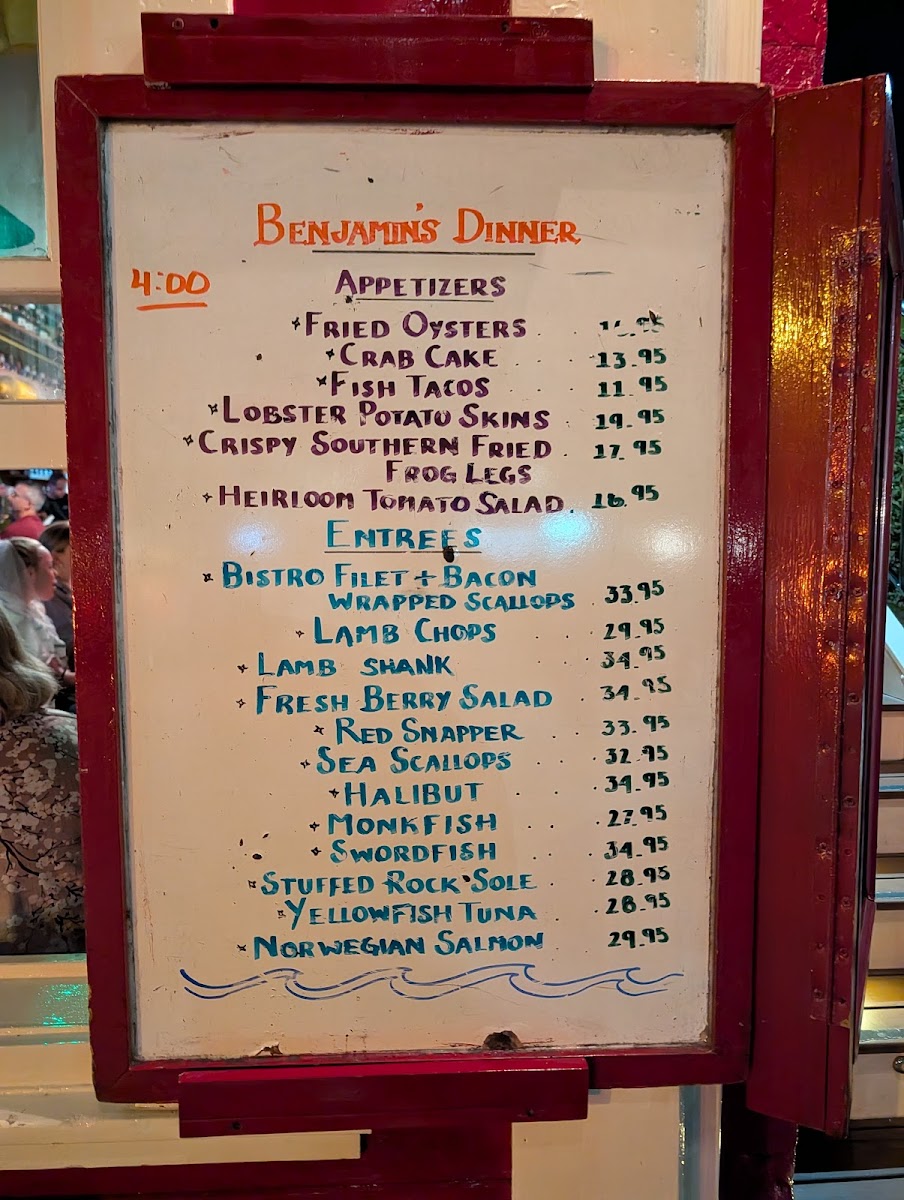 BENJAMIN'S DINNER
4:00
APPETIZERS
FRIED OYSTERS
CRAB CAKE 13.95
FISH TACOS 11.95
LOBSTER POTATO SKINS 19.95
CRISPY SOUTHERN FRIED 17.95
FROG LEGS
HEIRLOOM TOMATO SALAD 16.95
ENTREES
BISTRO FILET + BACON
WRAPPED SCALLOPS 33.95
LAMB CHOPS 29.95
LAMB SHANK 34.95
FRESH BERRY SALAD 34.95
RED SNAPPER 33.95
SEA SCALLOPS 32.95
HALIBUT 34.95
MONKFISH 27.95
SWORDFISH 34.95
STUFFED ROCK SOLE 28.95
YELLOWFISH TUNA 28.95
NORWEGIAN SALMON 29.95